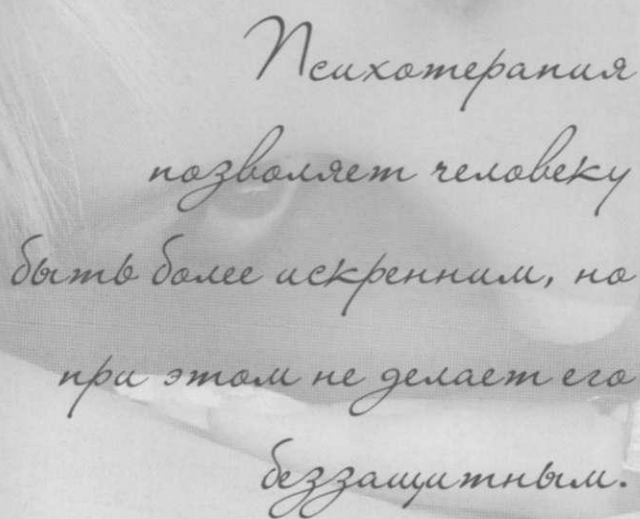 Психотерапия
позволяет человеку
быть более искренним, но
при этом не делает его
беззащитным.